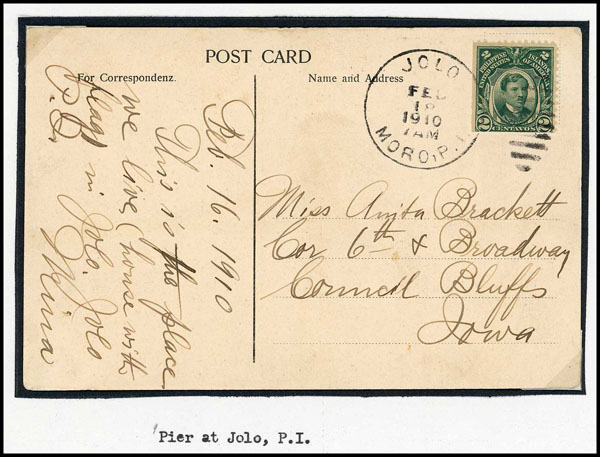 POST CARD
For Correspondenz.
Name and Address
JOLO
FEB
18
1910
7AM
MORO, P.I.
2 2
PHILIPPINE ISLANDS
UNITED STATES OF AMERICA
2 CENTAVOS 2
Feb. 16. 1910
This is the place
we live, (house with
flag) in Jolo. Jolo
P.I.
Nina
Miss Anita Brackett
Cor 6th & Broadway
Council Bluffs
Iowa
Pier at Jolo, P.I.